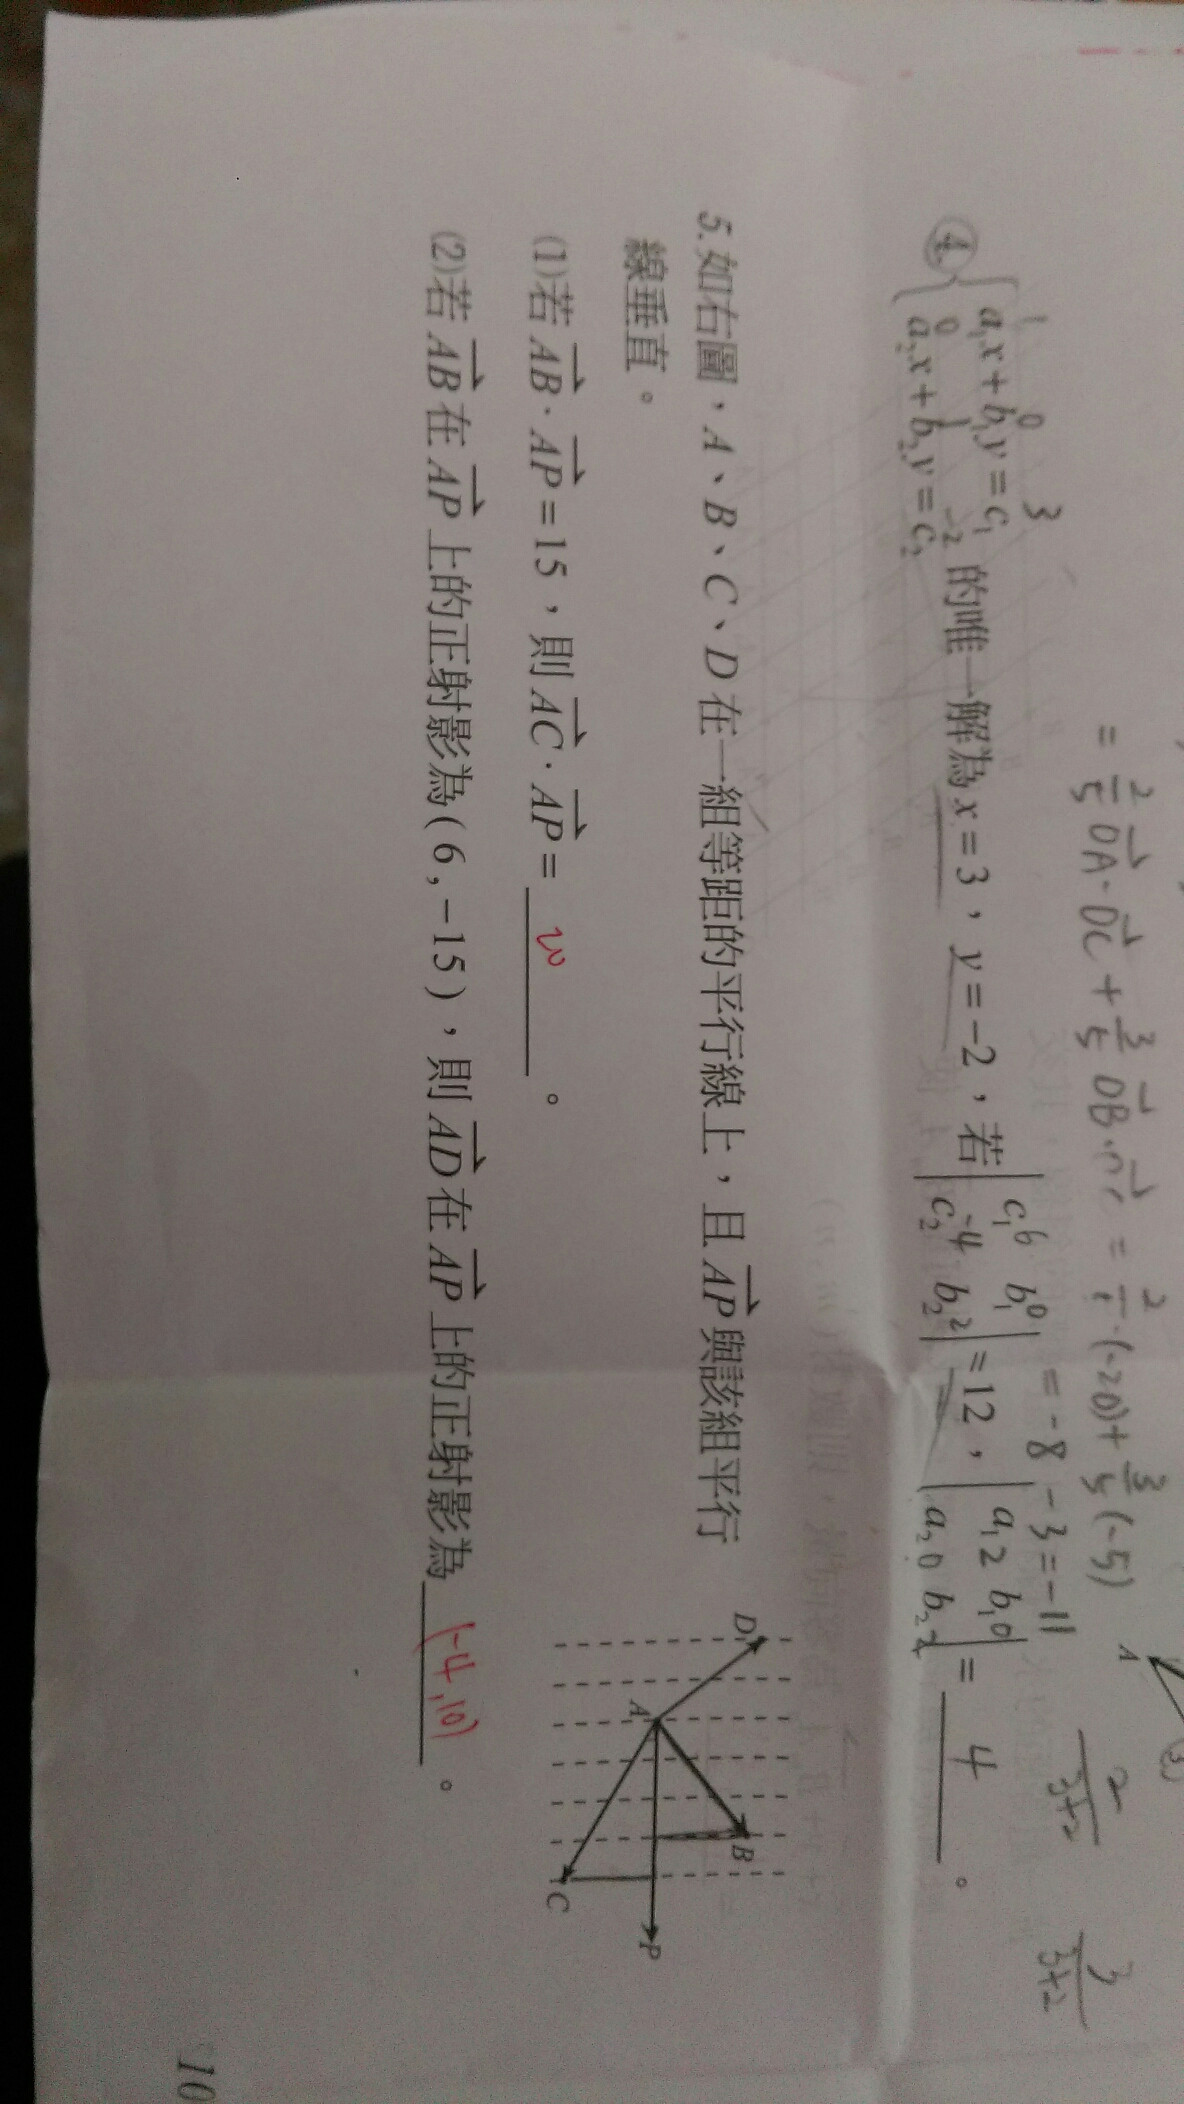 = 2/5 OA·OC + 3/5 OB·OC = (-20)+ 3/5 (-5)
= -8 -3 = -11
2/3+2
3/3+2
A
④ { a₁x + b₁y = c₁
a₂x + b₂y = c₂ 的唯一解為 x = 3，y = -2，若 | c₁ b₁ | = 12，| a₁ b₁ | = 4。
| c₂ b₂ | | a₂ b₂ |
1 0 3
0 1 -2
6 0
-4 2
2 0
0 2
5. 如右圖，A、B、C、D 在一組等距的平行線上，且 AP 與該組平行
線垂直。
(1)若 AB · AP = 15，則 AC · AP = 20。
(2)若 AB 在 AP 上的正射影為 ( 6 , -15 )，則 AD 在 AP 上的正射影為 (-4,10)。
D
A
B
C
P
10